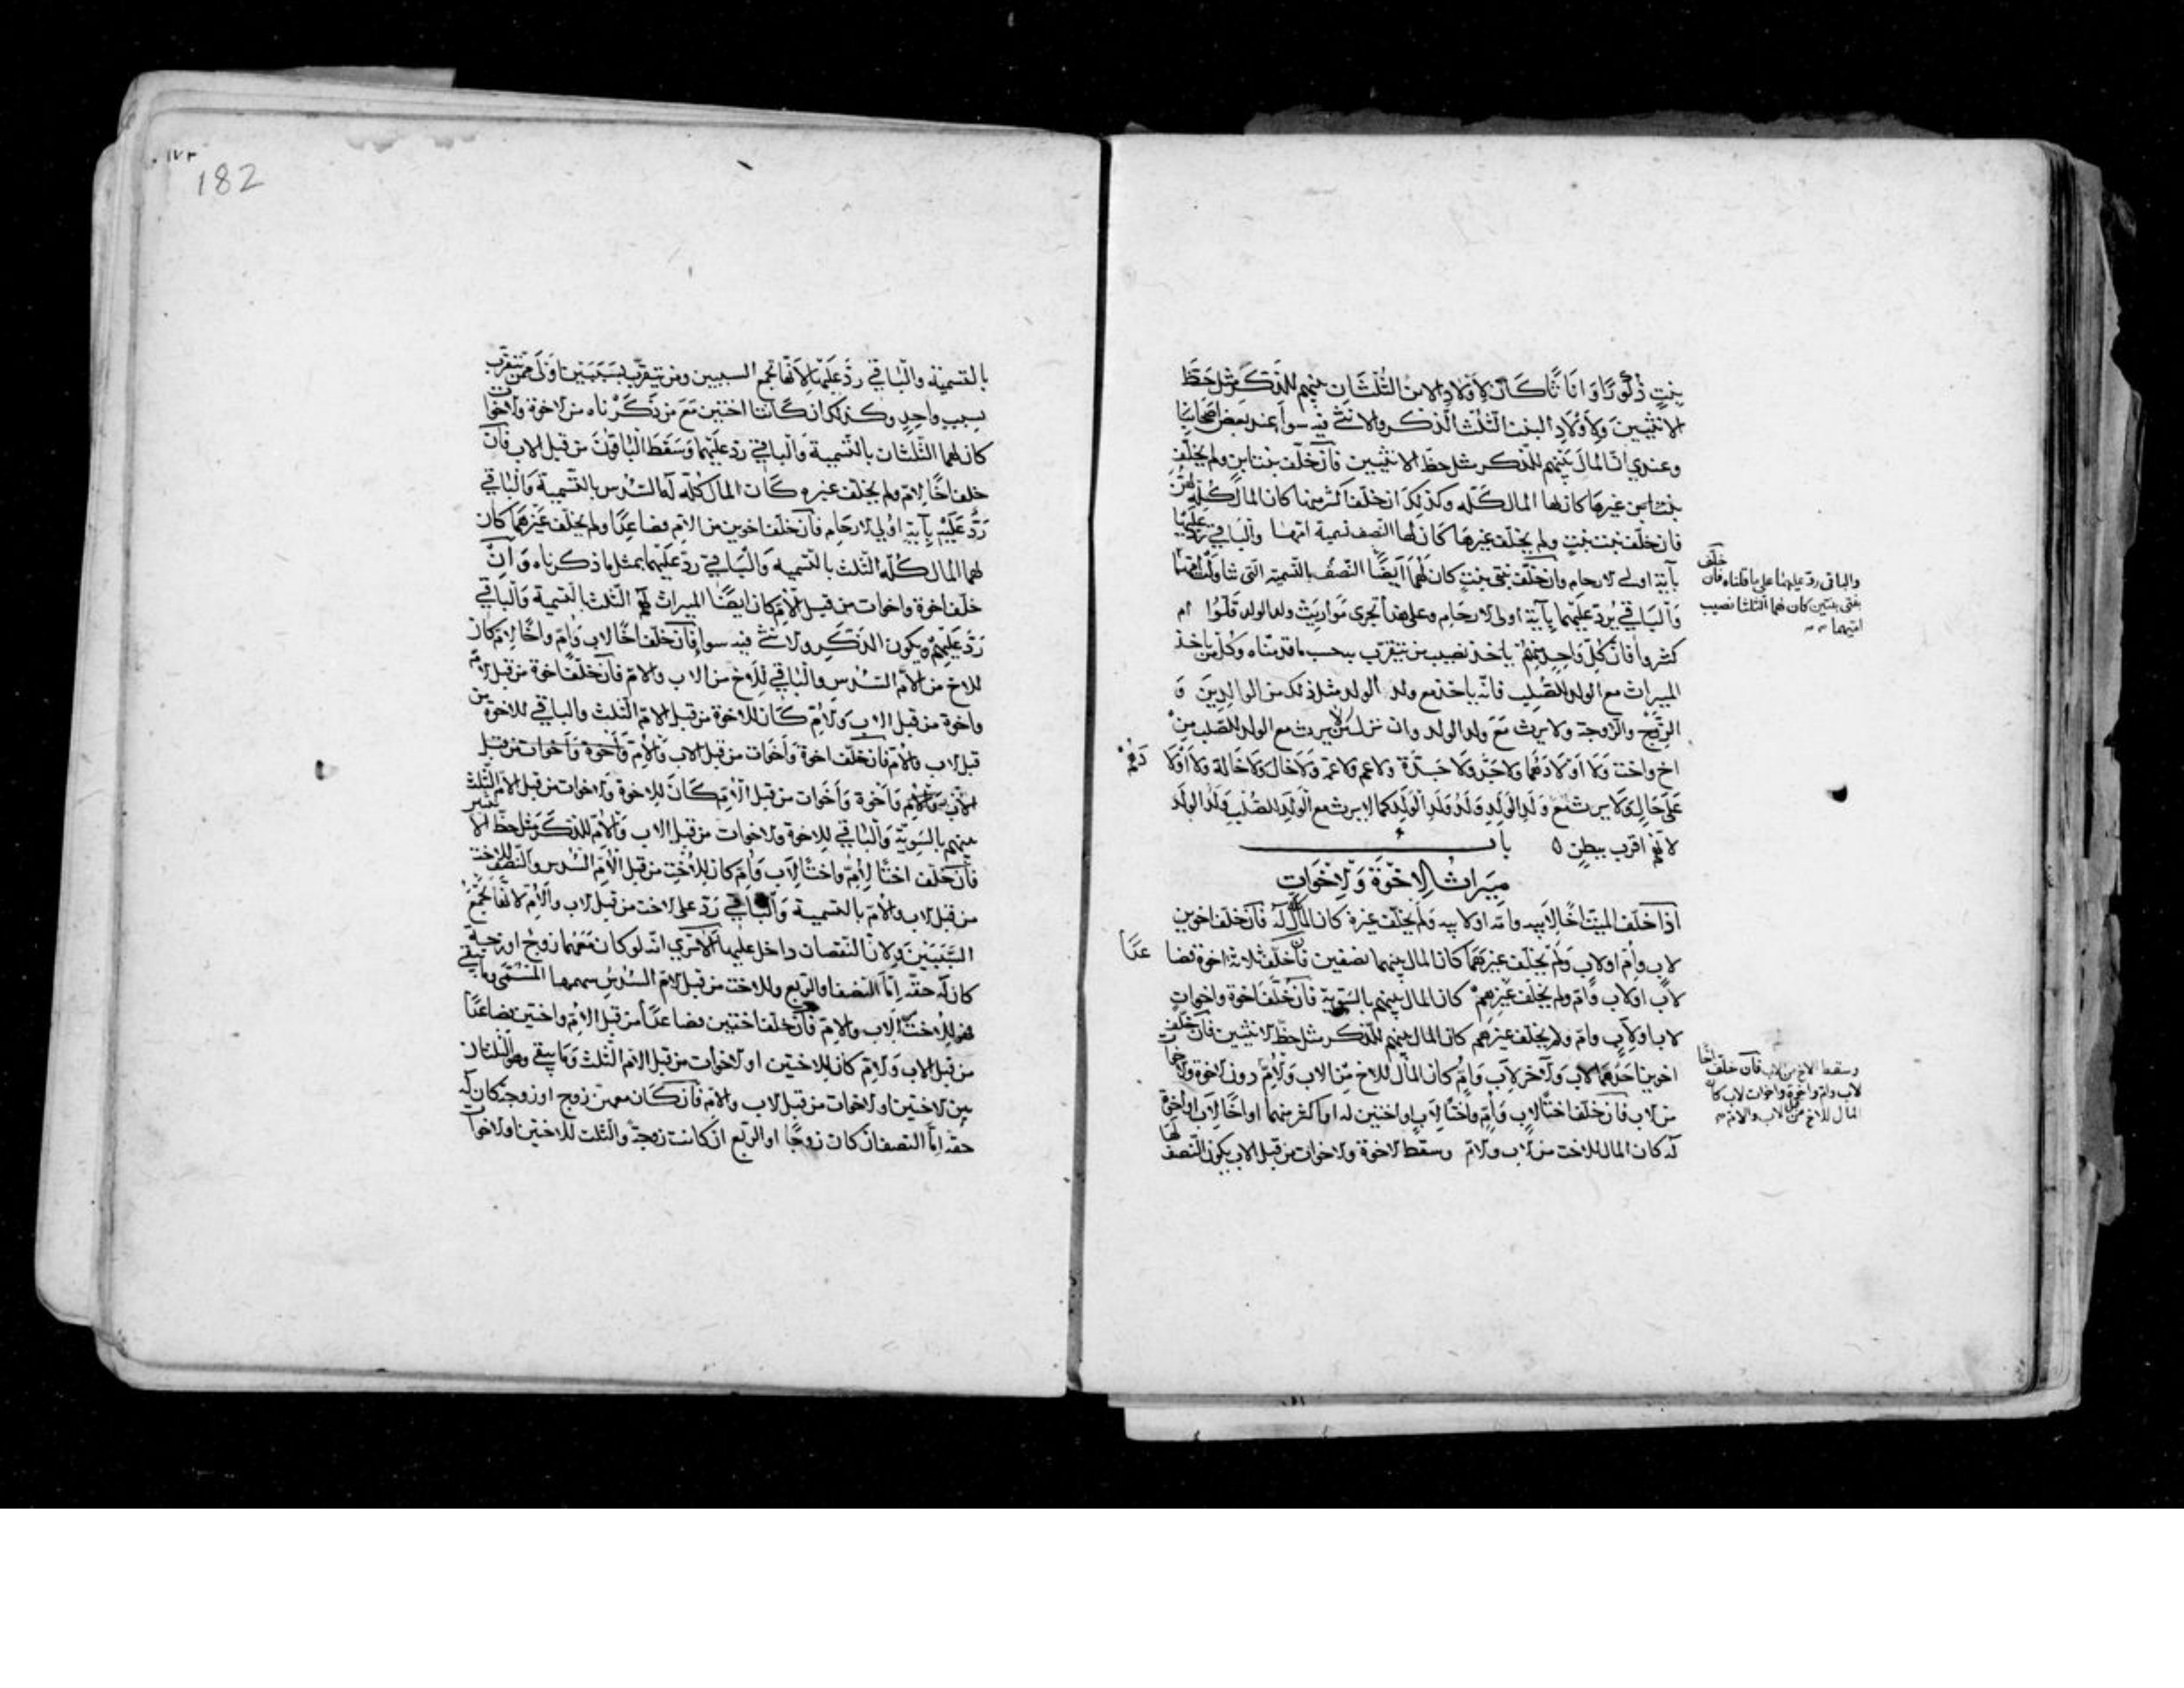 بنتٍ ذكورًا وَ اناثًا كَانَ لاَولادِ الابن الثُّلثَان بينهم للذّكَر مثل حَظّ
الانثيين وَلِاَوْلادِ البنت الثلث الذّكر والانثى فيه سواءٌ عند بَعض اَصحابنا
وعندي انّ المالَ بَينهم للذّكر مثل حظّ الانثيين فان خلّف بنت ابن ولم يخلّف
غيرهَا كان لها المال كَلّه وكذلِكَ ان خلّف اكثر منها كان المال كُلّه لهنّ
فان خلّف بنت بنتٍ ولم يخلّف غيرهَا كَانَ لها النّصف تسمية امّها والباقي ردّ عليها
بآية اولى الارحام وان خلّف بنتى بنتٍ كان لَهمَا اَيضًا النّصف بالتّسمية الّتى تناولت امّهما
وَالباقي يُردّ عَليهما بِآية اولى الارحَام وعلى هذا تجرى مَواريث ولد الولد قلّوا ام
كثروا فانّ كلّ وَاحِدٍ منهمْ ياخذ نصيب من يتقرّب به حسب ما قدّمناه وكُلّ من ياخذ
الميراث مع الولد للصّلب فانّه ياخذ مع ولد الولد مثل ذلك من الوالدِيَن وَ
الزّوج والزّوجة ولا يرث مَعَ ولد الولد وان نزل من لا يرث مع الولد للصّلب منْ
اخ واخت وَلَا اَوْلادهُما ولا جَدّ وَلا جَدّة ولا عم ولا عمّة وَلا خال وَلا خَالة وَلا اَوْلادهُمْ
عَلى حَالٍ وَلا يرث مع وَلَدِ الوَلَدِ وَلَدُ وَلَدِ الوَلَدِ كما لا يرث مع الْوَلَدِ للصُّلْبِ وَلَدُ الولَد
لانّهم اقرب ببطنٍ ٥ باب
مِيَراثُ الاِخْوَةِ وَالاخَوَاتِ
اذا خلّف الميّت اخًا لابيه وامّه او لابيه وَلَم يخلّف غيرهُ كان المالُ لَه فَان خلّف اخوين
لاب وامٍّ او لابٍ وَلَمْ يخلّف غيرَهُمَا كان المال بينهما نصفين فان خلّف ثلاثة اخوة فصاعدًا
لاَب او لاب وَامّ ولم يخلّف غَيرَهمْ كان المال بينهم بالسّويّة فَان خلّف اخوة واخواتٍ
لاب او لاَبٍ وامّ ولم يخلّف غيرهم كان المال بينهم للذّكر مثل حظّ الانثيين فان خلّف
اخوين احَدُهُمَا لابٍ وَالآخر لاَب وَامٍّ كان المال للاخ مِن الاب وَالاُمّ دون الاخوة والاخوات
من الاب فان خلّف اختًا لابٍ وَامٍّ واختًا لابٍ او اختين له او اكثر منهما او اخًا لاَبٍ او اخوة
له كان المال للاخت من الاب والامّ وسقط الاخوة والاخوات من قبل الاب يكون النّصف لها
والباقى ردّ عليهما على ما قلناه فان خلّف
بنتى بنتين كان لهما الثلثا نصيب
امّيهما
وسقط الاخ من الاب فان خلّف اخًا
لاب وامّ واخوة واخوات لاب كان
المال للاخ من قبل الاب والامّ
١٧٣
182
بالتسمية والبَاقي ردّ عَلَيْها لاَنّها تجمع السببين ومن يتقرّب بسَبَبَين اَوْلَى ممّن يتقرّب
بسبب واحِدٍ وكذلك ان كَانتا اختين مَعَ من ذكَرْناه من الاخوة والاخوات
كان لهما الثّلثان بالتّسمية وَالباقي ردّ علَيهما وَسَقَطَ الْبَاقونَ من قبل الاب فان
خلف اخًا لامّ ولم يخلّف غيره كَان المال كُلّه لَه السّدس بالتسمية وَالباقي
رَدٌّ عَلَيْهِ بِآيَةِ اولي الارحَام فان خلّف اخوين من الامّ فصاعدًا ولم يخلّف غيرَهمَا كان
لهما المال كُلّه الثّلث بالتسمية وَالبَاقي ردّ عَليْهما بمثل ما ذكرناه وَ ان
خلّف اخوة واخوات من قبل الاُمّ كان ايضًا الميراث لهم الثّلث بالتسمية وَالبَاقي
رَدّ عَليهم ويكون الذّكَر والانثى فيه سواء فان خلّف اخًا لابٍ وَامّ واخًا لامّ كان
للاخ من الاُمّ السّدس والباقي للاَخ من الاب والامّ فان خلّف اخوة من قبل الامّ
واخوة من قبل الابِ وَالاُمّ كَان للاخوة من قبل الامّ الثلث والباقي للاخوة من
قبل الاب والاُمّ فان خلّف اخوة وَاخَوات من قبل الاب والاُمّ وَاخوة وَاخوات من قبل
الاُمّ كَانَ للاِخوة وَالاخوات من قبل الامّ الثّلث
بينهم بالسَويّة وَالباقي للاخوة والاخوات من قبل الاب وَالاُمّ للذّكَر مثل حظّ الانثيين
فان خلّف اختًا لِاُمّ واختًا لِاَب وَامّ كان للاُخت من قبل الاُمّ السّدس والنّصف للاخت
من قبل الاب والامّ بالتسمية وَالبَاقي رَدّ على الاخت من قبل الاب والاُمّ لانّها تجْمَعُ
السّبَبَين ولانّ النّقصان داخل عليها الا ترى انّه لو كان معهما زوجٌ او زوجة
كان لَه حقّه امّا النصف او الرّبع وللاخت من قبل الامّ السّدُس سهمها المسَمّى وما يبقى
فهو للاخت للاَب والامّ فَان خلّف اختين فصاعدًا من قبل الاُمّ واختين فصاعدًا
من قبل الاب وَالامّ كان للاختين او الاخوات من قبل الامّ الثُلث وَمَا يبقى وهو الثلثان
بين الاختين او الاخوات من قبل الاب والامّ فان كَان معهن زوج او زوجة كان له
حقّه امّا النصف ان كان زوجًا او الرّبع ان كانت زوجة والثلث للاختين او الاخوات